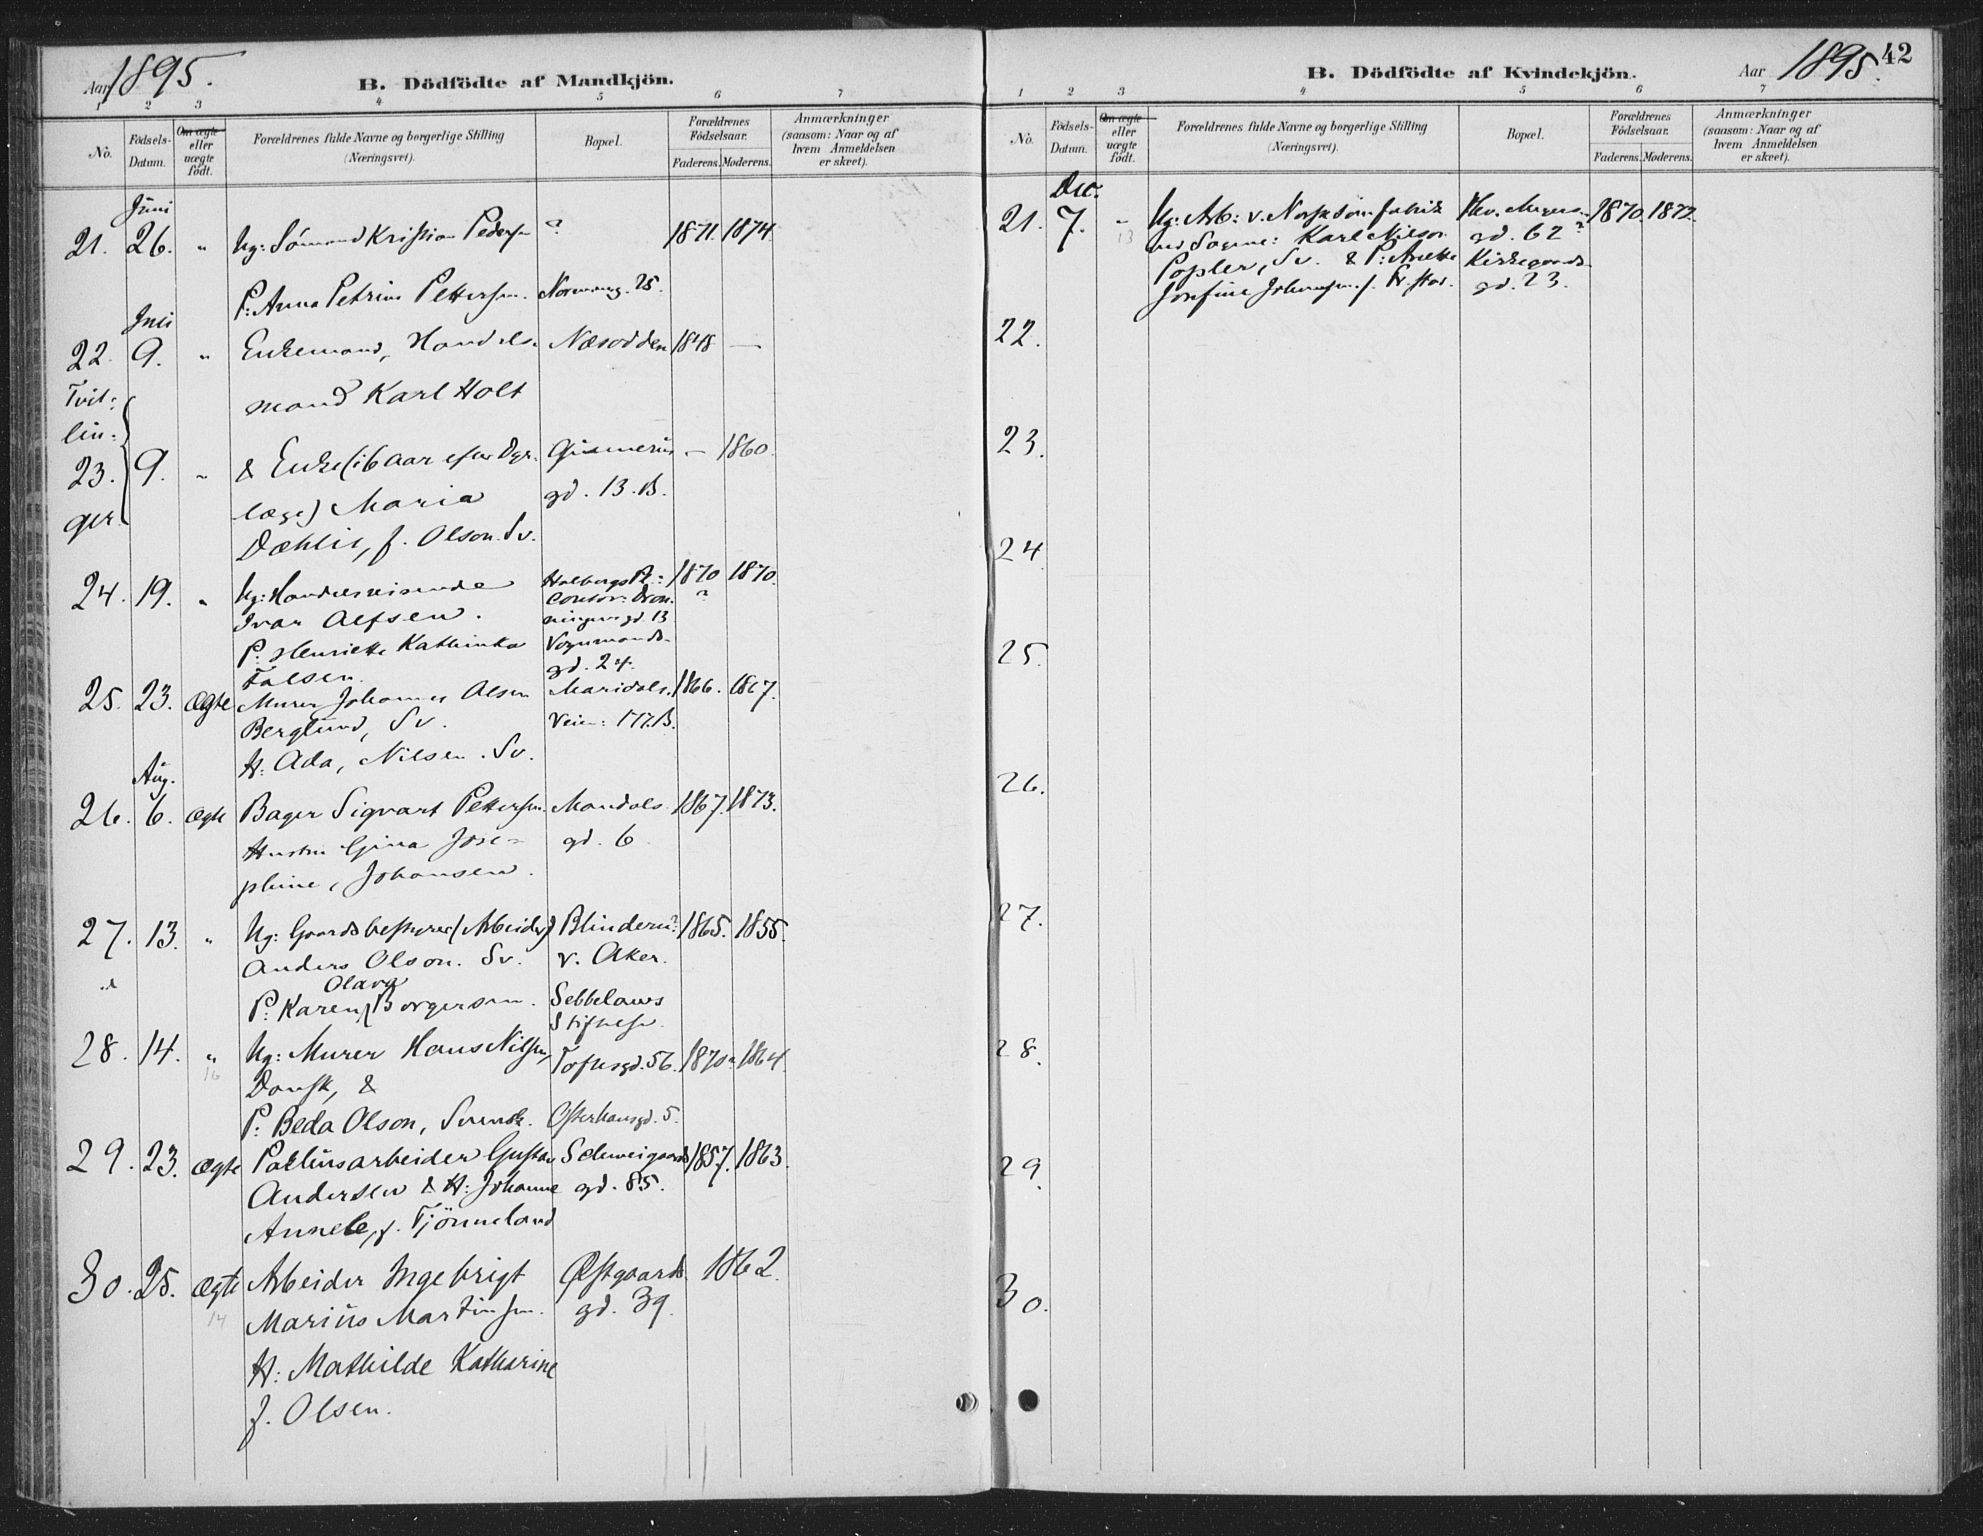 Aar 1895.
B. Dödfödte af Mandkjön.
1 2 3 4 5 6 7
No.
Födsels-Datum.
Om ægte eller uægte födt.
Forældrenes fulde Navne og borgerlige Stilling (Næringsvei).
Bopæl.
Forældrenes Födselsaar.
Faderens. Moderens.
Anmærkninger (saasom: Naar og af hvem Anmeldelsen er skeet).
Juni
21. 26. " Ug: Sömand Kristian Pedersen ? 1871. 1874.
P: Anna Petrine Pettersen. Normanng. 25.
Juli
22. 9. " Enkemand, Handels- Næsodden 1848 —
mand Karl Holt
Tvil:
lin:
23. 9. " & Enke (i 6 Aar efter Dyr- — 1860.
læge) Maria gd. 13.B.
ger.
Dæhlie, f. Olson. Sv.
24. 19. " Ug: Handelsreisende Holbergs Pl.: 1870 1870.
Ivar Alfsen. Contor: Dron- ?
ningensgd. 13
P: Henriette Kathinka Vognmands-
Falsen. gd. 24.
25. 23. Ægte Murer Johannes Olsen Maridals- 1866. 1867.
Berglund, Sv. Veien: 177.B.
H: Ada, Nilsen. Sv.
Aug.
26. 6. Ægte Bager Sigvart Pettersen. Mandals- 1867. 1873.
Hustru Gina Jose- gd. 6.
phine, Johansen.
27. 13. " Ug: Gaardsbestyrer (Arbeider) Blindern? 1865. 1855.
Anders Olson. Sv. v. Aker.
Olava
P: Karen Borgersen. Sebbelows
Stiftelse.
28. 14. " Ug: Murer Hans Nilsen, Toftesgd. 56. 1870? 1864.
16
Dansk, &
P: Beda Olson, Svensk. Osterhausgd. 5.
29. 23. Ægte Pakhusarbeider Gustav Schweigaards 1857. 1863.
Andersen & H: Johanne gd. 85.
f. Tjönneland
30. 25. Ægte Arbeider Ingebrigt Østgaards- 1862.
14
Marius Martinsen. gd. 39.
H: Mathilde Katharine
f. Olsen.
B. Dödfödte af Kvindekjön.
Aar 1895. 42
1 2 3 4 5 6 7
No.
Födsels-Datum.
Om ægte eller uægte födt.
Forældrenes fulde Navne og borgerlige Stilling (Næringsvei).
Bopæl.
Forældrenes Födselsaar.
Faderens. Moderens.
Anmærkninger (saasom: Naar og af hvem Anmeldelsen er skeet).
Dec.
21. 7. " Ug: Arb: v. Norsk Sömfabrik Hbr. Meyers- 1870. 1872.
13
ved Sagene: Karl Nilson gd. 62?
Popler, Sv. & P: Anette Kirkegaards-
Josefine Johansen, f. Fr.stad. gd. 23.
22.
23.
24.
25.
26.
27.
28.
29.
30.